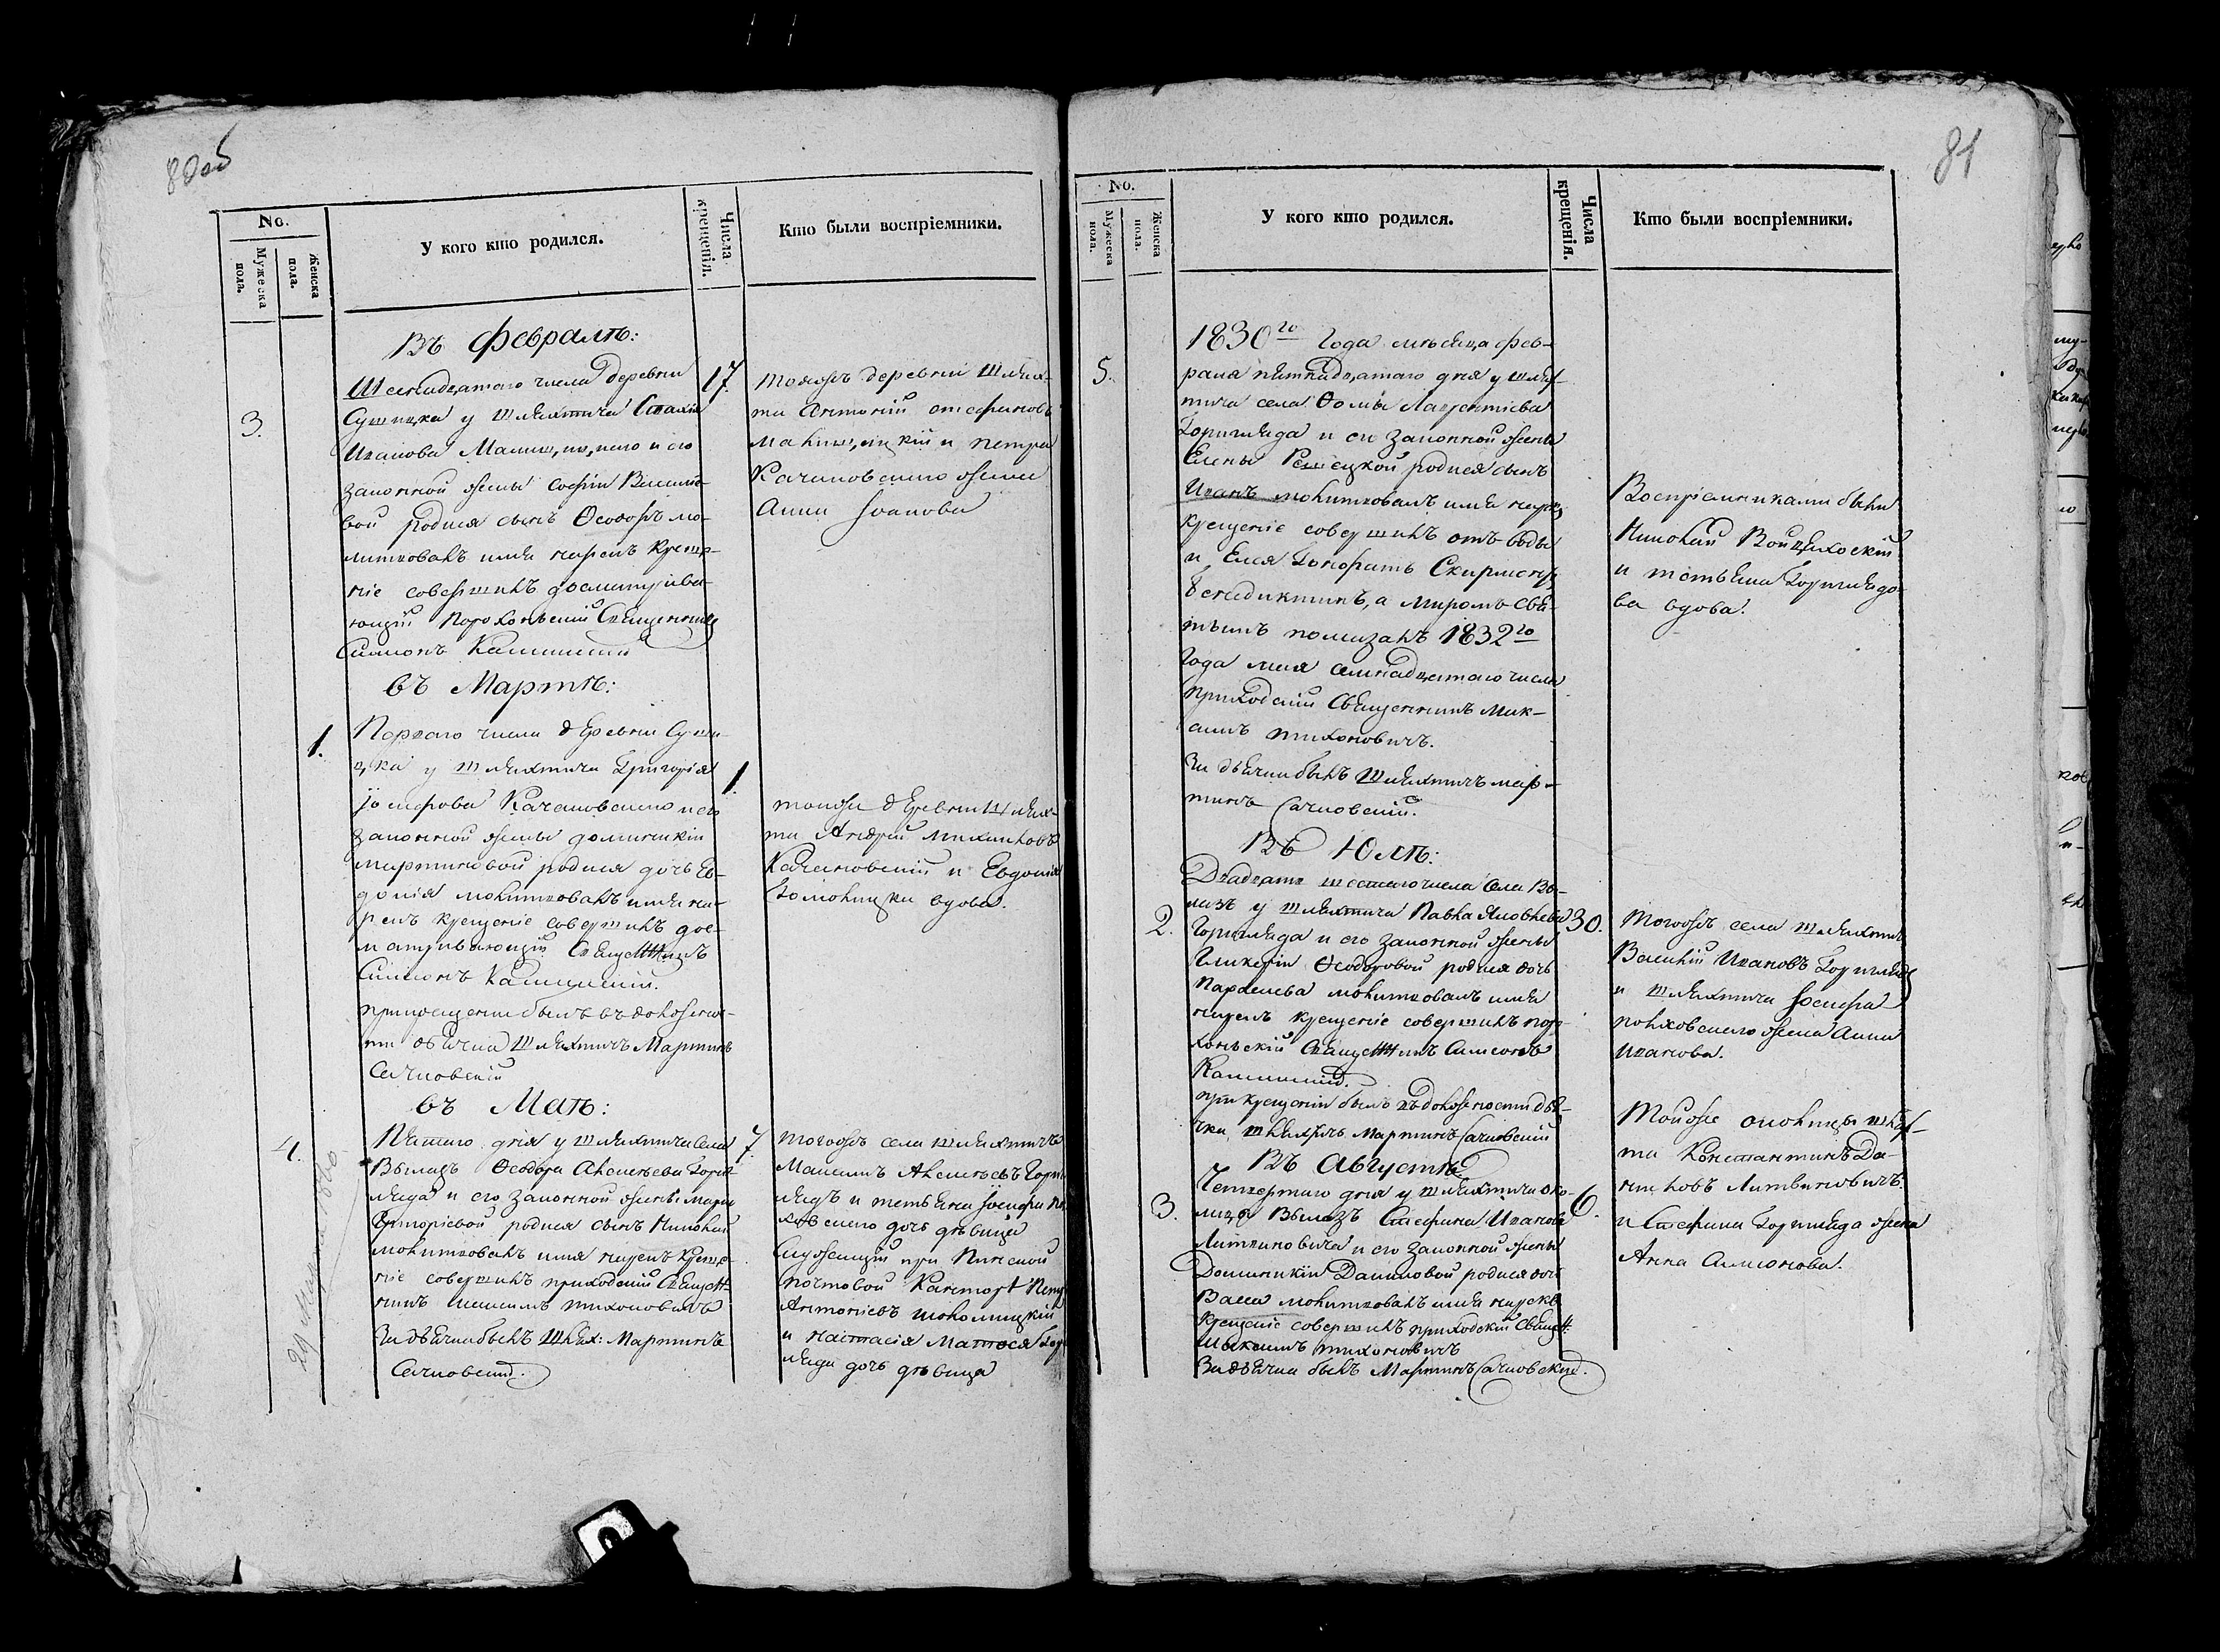 80об
No.
Мужеска пола.
Женска пола.
У кого кто родился.
Числа крещенія.
Кто были воспріемники.
Въ Февралѣ:
3.
Шестнадцатаго числа деревни
Сушицка у шляхтича
Иванова и его
законной жены Софіи Василіе-
вой родился сынъ Ѳеодоръ мо-
литвовалъ имя нарекъ креще-
ніе совершилъ досматрива-
ющій Священникъ
Симеонъ
17.
тоежъ деревни шлях-
ти Антоній Стефановъ
и Петра
Качановскаго жена
Анна Іванова
въ Мартѣ:
1.
Перваго числа деревни Суши-
цка у шляхтича Григорія
Іосифова Качановскаго и его
законной жены Доминикіи
Мартиновой родися дочь Ев-
докія молитвовалъ имя на-
рекъ крещеніе совершилъ дос-
матривающій Священникъ
Симеонъ
при крещеніи былъ въ должнос-
ти дьячка шляхтичъ Мартинъ
Сачковскій
1.
тоижъ деревни шлях-
ти Андрей Михаиловъ
Качановскій и Евдокія
вдова.
въ Маѣ:
4.
Пятаго дня у шляхтича села
Вылазъ Ѳеодора Алексеева Горег-
ляда и его законной жены Маріи
Григоріевой родися сынъ Николай
молитвовалъ имя нарекъ креще-
ніе совершилъ приходскій Священ-
никъ Максимъ Тихоновичъ
За дьячка былъ Шлях: Мартинъ
Сачковскій.
7.
тогожъ села шляхтичъ
Максимъ Алексеевъ Горег-
лядъ и
дочь дѣвица
Служащій при Пинской
почтовой Канторѣ Петръ
Антоніевъ
и Настасія Матѳея Гор
ляда дочь дѣвица
81
No.
Мужеска пола.
Женска пола.
У кого кто родился.
Числа крещенія.
Кто были воспріемники.
5.
1830го Года мѣсяца фев-
раля пятнадцатаго дня у шлях-
тича села Ѳомы Лаврентіева
Горегляда и его законной жены
Елены родися сынъ
Иванъ молитвовалъ имя нарекъ
крещеніе совершилъ отъ воды
и Елея
Бенедиктинъ, а миромъ свя-
тымъ помазалъ 1832го
Года мая семнадцатаго числа
приходскій Священникъ Мак-
симъ Тихоновичъ.
За дьячка былъ шляхтичъ Мар-
тинъ Сачковскій.
Воспріемниками были
Николай
и
вдова.
Въ Юлѣ:
2.
Двадцать шестаго числа села Вы-
лазъ у шляхтича Павла Яковлева
Горегляда и его законной жены
Гликеріи Ѳеодоровой родися дочь
Параскева молитвовалъ имя
нарекъ крещеніе совершилъ
Священникъ Симеонъ

при крещеніи былъ въ должности дья-
чка шляхтичъ Мартинъ Сачковскій
30.
Тогожъ села шляхтичъ
Василій Ивановъ Гореглядъ
и шляхтича Іосифа
жена Анна
Иванова.
Въ Августѣ
3.
Четвертаго дня у шляхтича око-
лицы Вылазъ Стефана Иванова
Литвиновича и его законной жены
Доминикіи Даниловой родися дочь
Васса молитвовалъ имя нарекъ
Крещеніе совершилъ приходскій Священ:
Максимъ Тихоновичъ
За дьячка былъ Мартинъ Сачковскій.
6.
Тойже околицы шлях-
та Константинъ Да-
ниловъ Литвиновичъ
и Стефана Горегляда жена
Анна Симеонова.